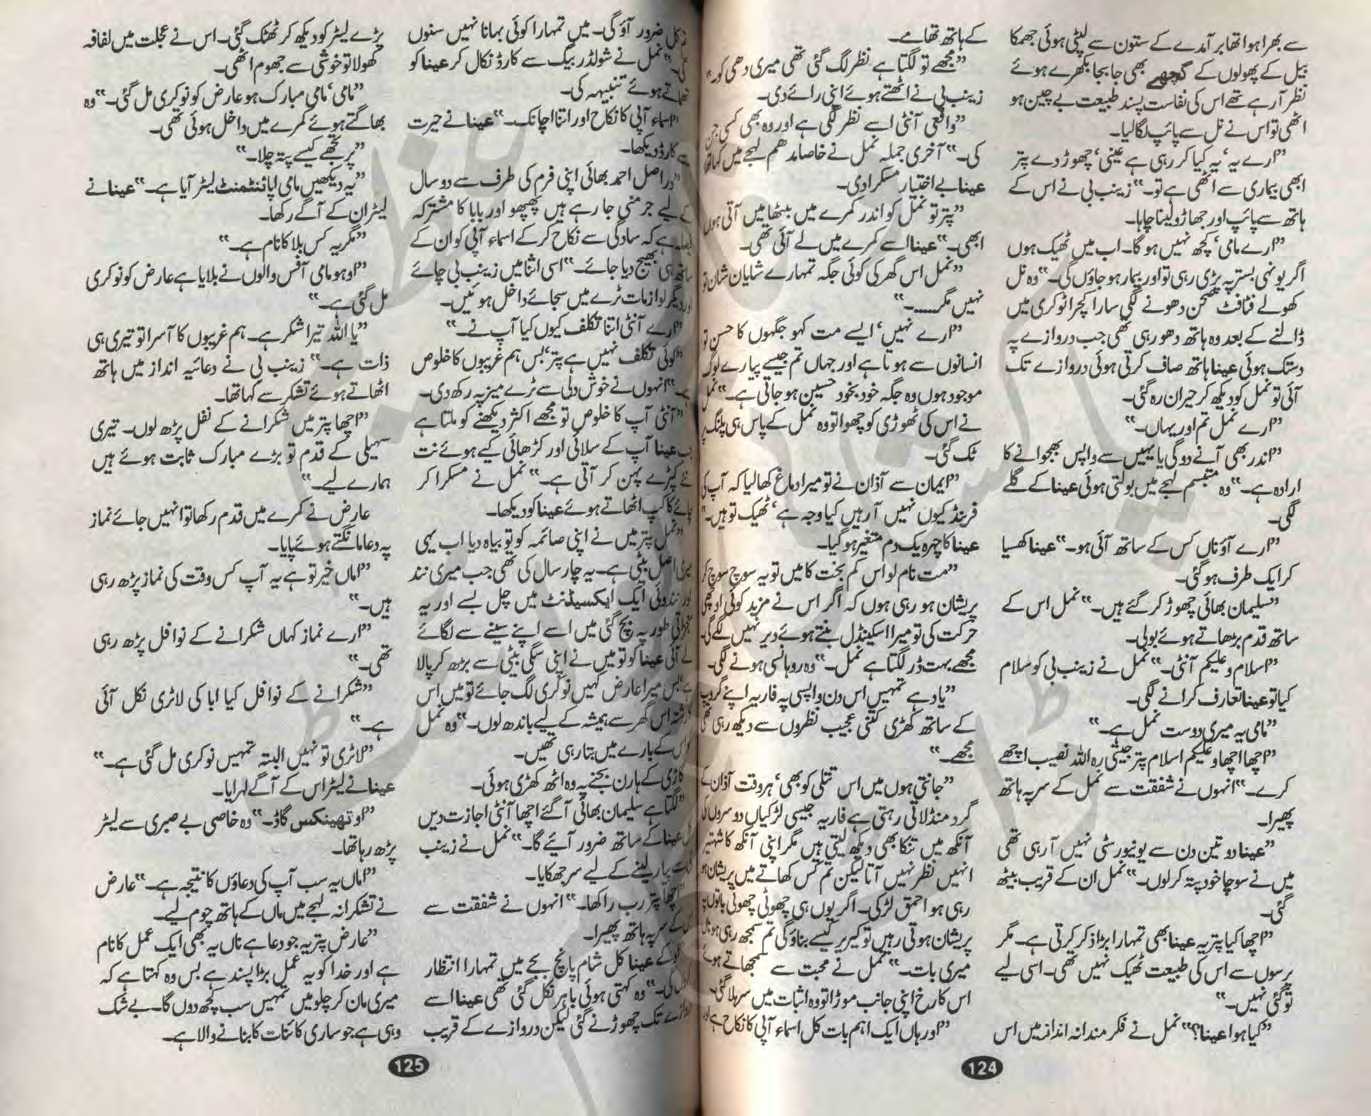 سے بھرا ہوا تھا برآمدے کے ستون سے لپٹی ہوئی جھمکا
بیل کے پھولوں کے گچھے بھی جا بجا بکھرے ہوئے
نظر آ رہے تھے اس کی نفاست پسند طبیعت بے چین ہو
اٹھی تو اس نے نل سے پائپ لگا لیا۔
”ارے یہ‘ یہ کیا کر رہی ہے عینی‘ چھوڑ دے پتر
ابھی بیماری سے اٹھی ہے تو۔“ زینب بی نے اس کے
ہاتھ سے پائپ اور جھاڑو لینا چاہا۔
”ارے مامی‘ کچھ نہیں ہو گا۔ اب میں ٹھیک ہوں
اگر یونہی بستر پہ پڑی رہی تو اور بیمار ہو جاؤں گی۔“ وہ نل
کھولے فٹافٹ صحن دھونے لگی سارا کچرا ٹوکری میں
ڈالنے کے بعد وہ ہاتھ دھو رہی تھی جب دروازے پہ
دستک ہوئی عینا ہاتھ صاف کرتی ہوئی دروازے تک
آئی تو نمل کو دیکھ کر حیران رہ گئی۔
”ارے نمل تم اور یہاں۔“
”اندر بھی آنے دو گی یا یہیں سے واپس بھجوانے کا
ارادہ ہے۔“ وہ متبسم لہجے میں بولتی ہوئی عینا کے گلے
لگی۔
”ارے آؤ ناں کس کے ساتھ آئی ہو۔“ عینا کھسیا
کر ایک طرف ہو گئی۔
”سلیمان بھائی چھوڑ کر گئے ہیں۔“ نمل اس کے
ساتھ قدم بڑھاتے ہوئے بولی۔
”اسلام و علیکم آنٹی۔“ نمل نے زینب بی کو سلام
کیا تو عینا تعارف کرانے لگی۔
”مامی یہ میری دوست نمل ہے۔“
”اچھا اچھا وعلیکم اسلام پتر جیتی رہ اللہ نصیب اچھے
کرے۔“ انہوں نے شفقت سے نمل کے سر پہ ہاتھ
پھیرا۔
”عینا دو تین دن سے یونیورسٹی نہیں آ رہی تھی
میں نے سوچا خود پتہ کر لوں۔“ نمل ان کے قریب بیٹھ
گئی۔
”اچھا کیا پتر یہ عینا بھی تمہارا بڑا ذکر کرتی ہے۔ مگر
پرسوں سے اس کی طبیعت ٹھیک نہیں تھی۔ اسی لیے
تو گئی نہیں۔“
”کیا ہوا عینا؟“ نمل نے فکر مندانہ انداز میں اس
کے ہاتھ تھامے۔
”مجھے تو لگتا ہے نظر لگ گئی تھی میری دھی کو۔“
زینب بی نے اٹھتے ہوئے اپنی رائے دی۔
”واقعی آنٹی اسے نظر لگی ہے اور وہ بھی کسی جن
کی۔“ آخری جملہ نمل نے خاصا مدھم لہجے میں کہا تھا
عینا بے اختیار مسکرا دی۔
”پتر تو نمل کو اندر کمرے میں بیٹھا میں آتی ہوں
ابھی۔“ عینا اسے کمرے میں لے آئی تھی۔
”نمل اس گھر کی کوئی جگہ تمہارے شایان شان تو
نہیں مگر......“
”ارے نہیں‘ ایسے مت کہو جگہوں کا حسن تو
انسانوں سے ہوتا ہے اور جہاں تم جیسے پیارے لوگ
موجود ہوں وہ جگہ خود بخود حسین ہو جاتی ہے۔“ نمل
نے اس کی ٹھوڑی کو چھوا تو وہ نمل کے پاس ہی پلنگ پر
ٹک گئی۔
”ایمان سے آذان نے تو میرا دماغ کھا لیا کہ آپ کی
فرینڈ کیوں نہیں آ رہیں کیا وجہ ہے‘ ٹھیک تو ہیں۔“
عینا کا چہرہ یک دم متغیر ہو گیا۔
”مت نام لو اس کم بخت کا میں تو یہ سوچ سوچ کر
پریشان ہو رہی ہوں کہ اگر اس نے مزید کوئی اوچھی
حرکت کی تو میرا اسکینڈل بنتے ہوئے دیر نہیں لگے گی۔
مجھے بہت ڈر لگتا ہے نمل۔“ وہ روہانسی ہونے لگی۔
”یاد ہے تمہیں اس دن واپسی پہ فاریہ اپنے گروپ
کے ساتھ کھڑی کتنی عجیب نظروں سے دیکھ رہی تھی
مجھے۔“
”جانتی ہوں میں اس تتلی کو بھی‘ ہر وقت آذان کے
گرد منڈلاتی رہتی ہے فاریہ جیسی لڑکیاں دوسروں کی
آنکھ میں تنکا بھی دیکھ لیتی ہیں مگر اپنی آنکھ کا شہتیر
انہیں نظر نہیں آتا لیکن تم کس کھاتے میں پریشان ہو
رہی ہو احمق لڑکی۔ اگر یوں ہی چھوٹی چھوٹی باتوں پہ
پریشان ہوتی رہیں تو کیریر کیسے بناؤ گی تم سمجھ رہی ہو ناں
میری بات۔“ نمل نے محبت سے سمجھاتے ہوئے
اس کا رخ اپنی جانب موڑا تو وہ اثبات میں سر ہلا گئی۔
”اور ہاں ایک اہم بات کل اسماء آپی کا نکاح ہے اور
124
تم کل ضرور آؤ گی۔ میں تمہارا کوئی بہانا نہیں سنوں
گی۔“ نمل نے شولڈر بیگ سے کارڈ نکال کر عینا کو
تھماتے ہوئے تنبیہہ کی۔
”اسماء آپی کا نکاح اور اتنا اچانک۔“ عینا نے حیرت
سے کارڈ دیکھا۔
”دراصل احمد بھائی اپنی فرم کی طرف سے دو سال
کے لیے جرمنی جا رہے ہیں پھپھو اور بابا کا مشترکہ
فیصلہ ہے کہ سادگی سے نکاح کر کے اسماء آپی کو ان کے
ساتھ ہی بھیج دیا جائے۔“ اسی اثنا میں زینب بی چائے
اور دیگر لوازمات ٹرے میں سجائے داخل ہوئیں۔
”ارے آنٹی اتنا تکلف کیوں کیا آپ نے۔“
”کوئی تکلف نہیں ہے پتر‘ بس ہم غریبوں کا خلوص
ہے۔“ انہوں نے خوش دلی سے ٹرے میز پر رکھ دی۔
”آنٹی آپ کا خلوص تو مجھے اکثر دیکھنے کو ملتا ہے
جب عینا آپ کے سلائی اور کڑھائی کیے ہوئے نت
نئے کپڑے پہن کر آتی ہے۔“ نمل نے مسکرا کر
چائے کا کپ اٹھاتے ہوئے عینا کو دیکھا۔
”نمل پتر میں نے اپنی صائمہ کو تو بیاہ دیا اب یہی
میری اصل بیٹی ہے۔ یہ چار سال کی تھی جب میری نند
اور نندوئی ایک ایکسیڈنٹ میں چل بسے اور یہ
معجزاتی طور پہ بچ گئی میں اسے اپنے سینے سے لگائے
لے آئی عینا کو تو میں نے اپنی سگی بیٹی سے بڑھ کر پالا
ہے بس میرا عارض کہیں نوکری لگ جائے تو میں اس
کا رشتہ اس گھر سے ہمیشہ کے لیے باندھ لوں۔“ وہ نمل
کو اس کے بارے میں بتا رہی تھیں۔
گاڑی کے ہارن بجنے پہ وہ اٹھ کھڑی ہوئی۔
”لگتا ہے سلیمان بھائی آ گئے اچھا آنٹی اجازت دیں
عینا کے ساتھ ضرور آئیے گا۔“ نمل نے زینب
سے پیار لینے کے لیے سر جھکایا۔
”اچھا پتر رب راکھا۔“ انہوں نے شفقت سے
اس کے سر پہ ہاتھ پھیرا۔
”اوکے عینا کل شام پانچ بجے میں تمہارا انتظار
کروں گی۔“ وہ کہتی ہوئی باہر نکل گئی تھی عینا اسے
دروازے تک چھوڑنے گئی لیکن دروازے کے قریب
پڑے لیٹر کو دیکھ کر ٹھٹک گئی۔ اس نے عجلت میں لفافہ
کھولا تو خوشی سے جھوم اٹھی۔
”مامی‘ مامی مبارک ہو عارض کو نوکری مل گئی۔“ وہ
بھاگتے ہوئے کمرے میں داخل ہوئی تھی۔
”پر تجھے کیسے پتہ چلا۔“
”یہ دیکھیں مامی اپائنٹمنٹ لیٹر آیا ہے۔“ عینا نے
لیٹر ان کے آگے رکھا۔
”مگر یہ کس بلا کا نام ہے۔“
”اوہو مامی آفس والوں نے بلایا ہے عارض کو نوکری
مل گئی ہے۔“
”یا اللہ تیرا شکر ہے۔ ہم غریبوں کا آسرا تو تیری ہی
ذات ہے۔“ زینب بی نے دعائیہ انداز میں ہاتھ
اٹھاتے ہوئے تشکر سے کہا تھا۔
”اچھا پتر میں شکرانے کے نفل پڑھ لوں۔ تیری
سہیلی کے قدم تو بڑے مبارک ثابت ہوئے ہیں
ہمارے لیے۔“
عارض نے کمرے میں قدم رکھا تو انہیں جائے نماز
پہ دعا مانگتے ہوئے پایا۔
”اماں خیر تو ہے یہ آپ کس وقت کی نماز پڑھ رہی
ہیں۔“
”ارے نماز کہاں شکرانے کے نوافل پڑھ رہی
تھی۔“
”شکرانے کے نوافل کیا ابا کی لاٹری نکل آئی
ہے۔“
”لاٹری تو نہیں البتہ تمہیں نوکری مل گئی ہے۔“
عینا نے لیٹر اس کے آگے لہرایا۔
”او تھینکس گاڈ۔“ وہ خاصی بے صبری سے لیٹر
پڑھ رہا تھا۔
”اماں یہ سب آپ کی دعاؤں کا نتیجہ ہے۔“ عارض
نے تشکرانہ لہجے میں ماں کے ہاتھ چوم لیے۔
”عارض پتر یہ جو دعا ہے ناں یہ بھی ایک عمل کا نام
ہے اور خدا کو یہ عمل بڑا پسند ہے بس وہ کہتا ہے کہ
میری مان کر چلو میں تمہیں سب کچھ دوں گا۔ بے شک
وہی ہے جو ساری کائنات کا بنانے والا ہے۔
125